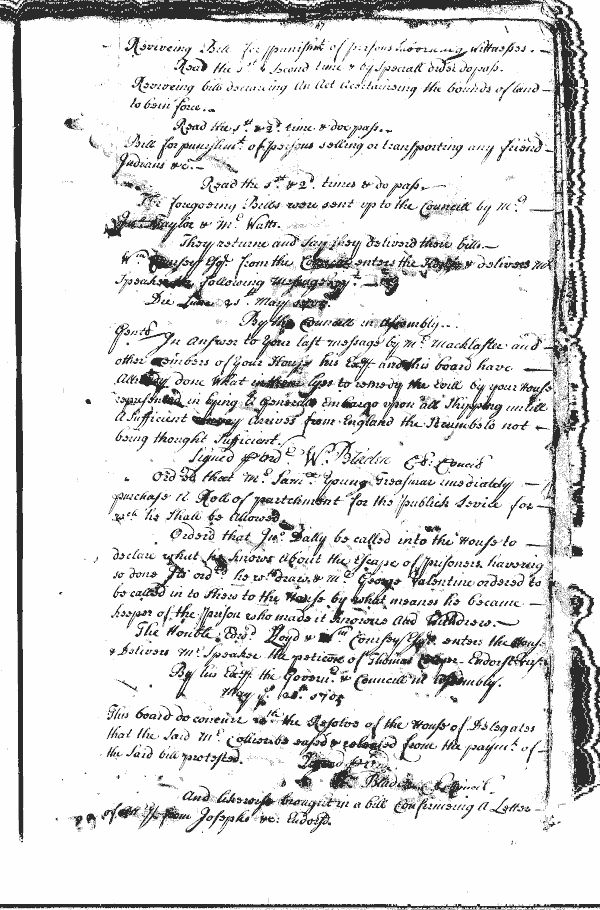 Reviveing Bill for punishmt of persons suborning wittnesses.
Read the 1st & second time & by speciall order do pass.
Reviveing bill declareing An Act Ascertaineing the bounds of land
to be in force.
Read the 1st & 2d time & doe pass.
Bill for punishmt of persons selling or transporting any friend
Indians &c.
Read the 1st & 2d times & do pass.
The foregoeing Bills were sent up to the Councill by Mr
Taylor & Mr Watts.
They returne and say they deliverd their bills.
Wm Coursey Esqr from the Councill enters the House & delivers Mr
Speaker the following message vizt
Die Lunæ 21st May 1705
By the Councill in Assembly
Gents
In Answer to your last message by Mr Macklaster and
other members of your House his Exy and this board have
Already done what in them lyes to remedy the evill by your House
represented in laying a Generall Embargo upon all Shipping untill
A Sufficient Convoy Arrives from England the Strumbelo not
being thought Sufficient.
Signed p Ordr W. Bladen Cl. Concil
Orderd that Mr Saml Young Treasurer imediately
purchase A Roll of partchment for the publick Service for
wch he shall be allowed
Orderd that Jno Dally be called into the House to
declare what he knows about the Escape of prisoners haveing
so done Its ordrd he wthdraw, & Mr George Valentine ordered to
be called in to shew to the House by what means he became
keeper of the prison who made it knowne And withdrew.
The Honble Edwd Lloyd & Wm Coursey Esqrs enters the House
& delivers Mr Speaker the peticon of Thomas Endorst
By his Exy the Governr & Councill in Assembly.
May ye 21st 1705
This board do concurr wth the Resolve of the House of Delegates
that the said Mr be eased & released from the paymt of
the said bill protested.
Signed p Ordr
W. Bladen Cl. Concil.
And likewise brought in a bill Confirmeing A Letter
of Atty from Josepho &c: Endorsd.